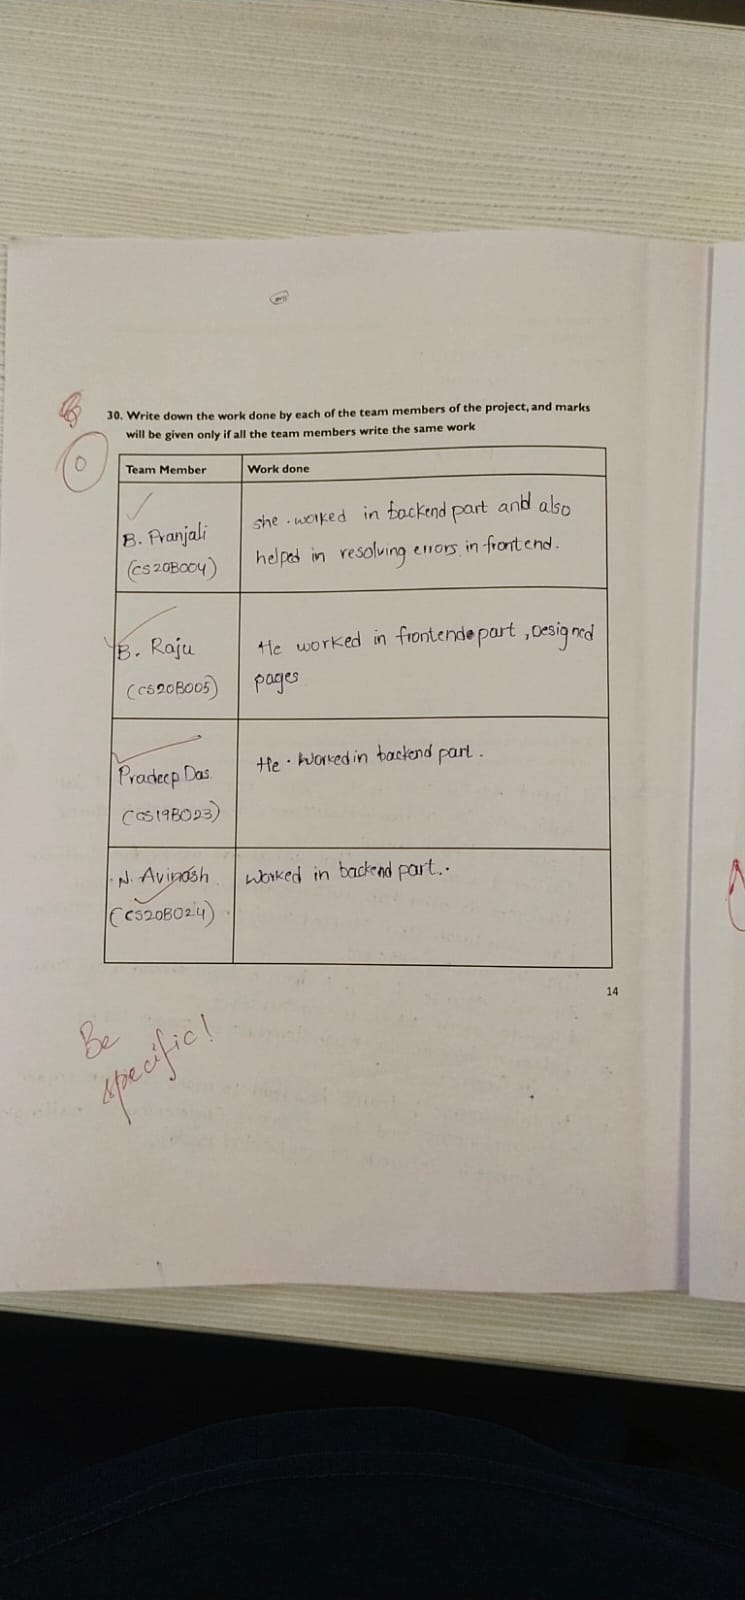 30. Write down the work done by each of the team members of the project, and marks
will be given only if all the team members write the same work
0
Team Member Work done
B. Pranjali
(CS20B004)
she worked in backend part and also
helped in resolving errors in frontend.
B. Raju
(CS20B005)
He worked in frontend part, Designed
pages
Pradeep Das
(CS19B023)
He worked in backend part.
N. Avinash
(CS20B024)
Worked in backend part.
14
Be
specific!